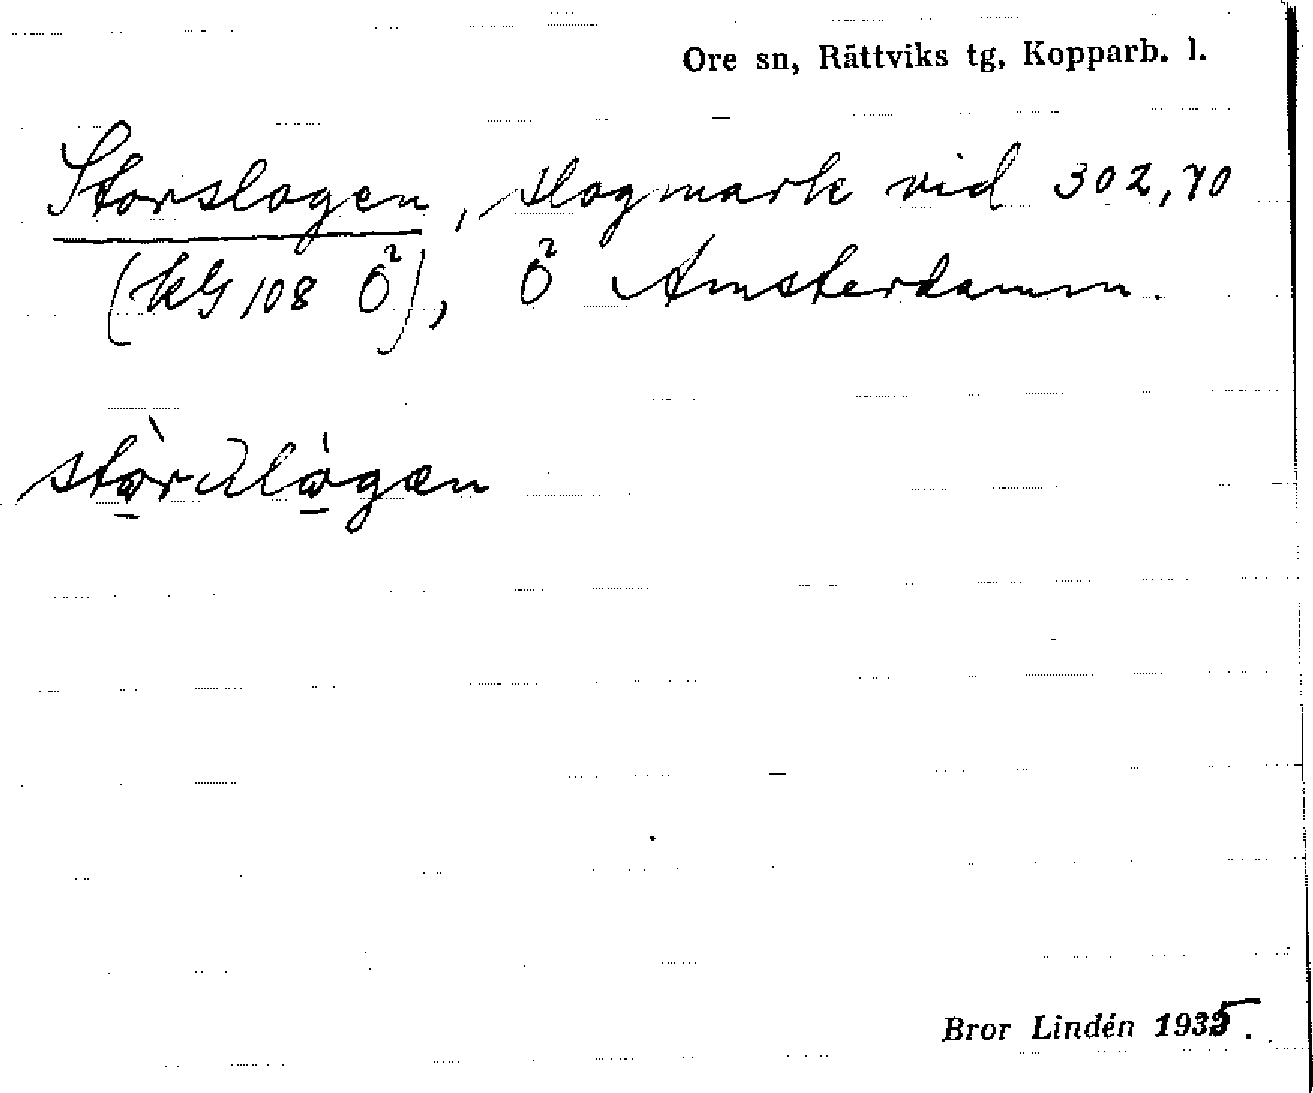 Ore sn, Rättviks tg, Kopparb. l.
Storslogen, slogmark vid 302,70
(KG 108 Ö²), Ö² Amsterdamm.
Bror Lindén 1935.